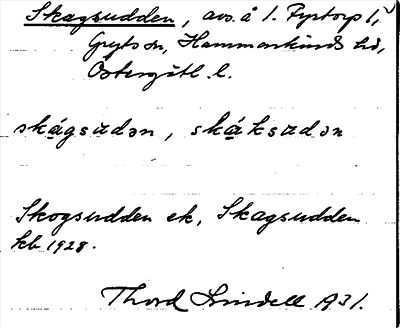 Skagsudden, avs. å l. Fyrtorp 1,
Gryts sn, Hammarkinds hd,
Östergötl. l.
skágsudən, skáksudən
Skogsudden ek, Skagsudden
kb 1928.
Thord Lindell 1931.